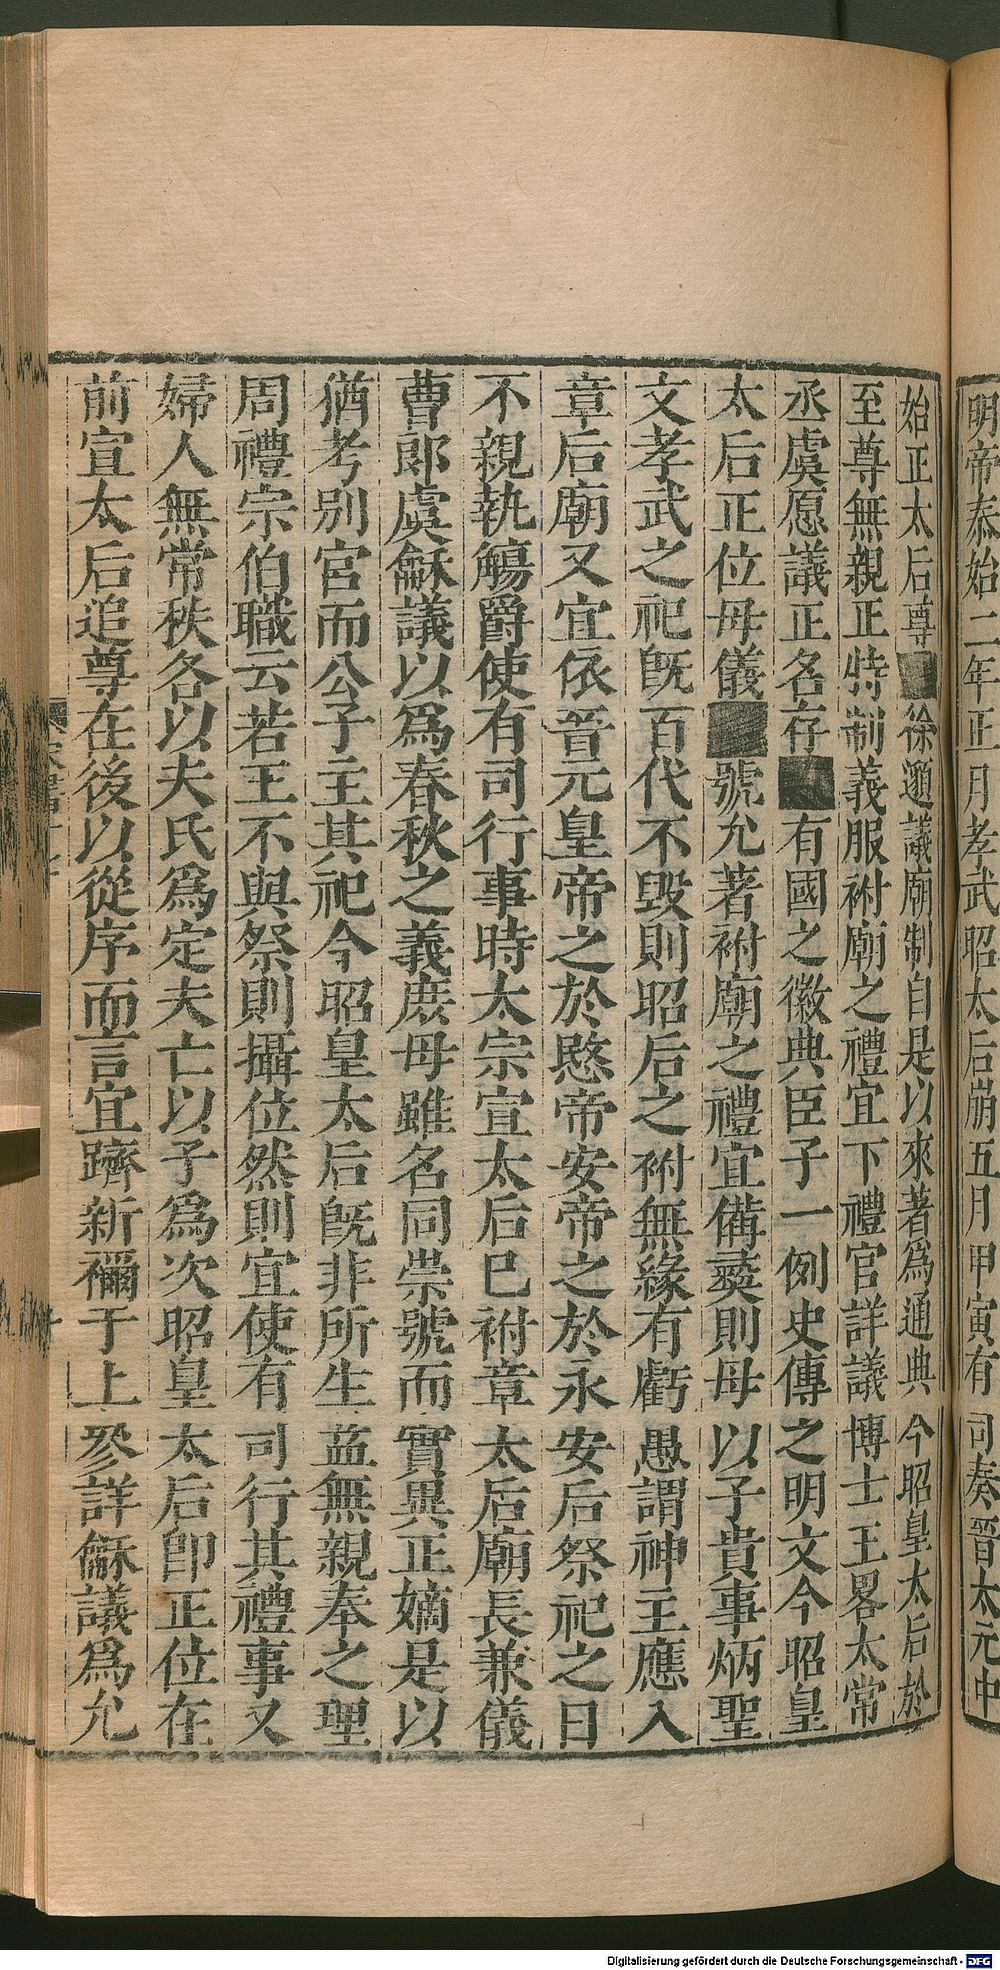 明帝泰始二年正月孝武昭太后崩五月甲寅有司奏晉太元中
始正太后尊■徐邈議廟制自是以來著為通典今昭皇太后於
至尊無親正特制義服祔廟之禮宜下禮官詳議博士王畧太常
丞虞愿議正名存■有國之徽典臣子一例史傳之明文今昭皇
太后正位母儀■號允著祔廟之禮宜備彛則母以子貴事炳聖
文孝武之祀旣百代不毀則昭后之祔無緣有虧愚謂神主應入
章后廟又宜依晉元皇帝之於愍帝安帝之於永安后祭祀之日
不親執觴爵使有司行事時太宗宣太后巳祔章太后廟長兼儀
曹郎虞龢議以爲春秋之義庶母雖名同崇號而實異正嫡是以
猶考別宮而公子主其祀今昭皇太后旣非所生益無親奉之理
周禮宗伯職云若王不與祭則攝位然則宜使有司行其禮事又
婦人無常秩各以夫氏爲定夫亡以子爲次昭皇太后卽正位在
前宣太后追尊在後以從序而言宜躋新禰于上參詳龢議爲允
Digitalisierung gefördert durch die Deutsche Forschungsgemeinschaft - DFG